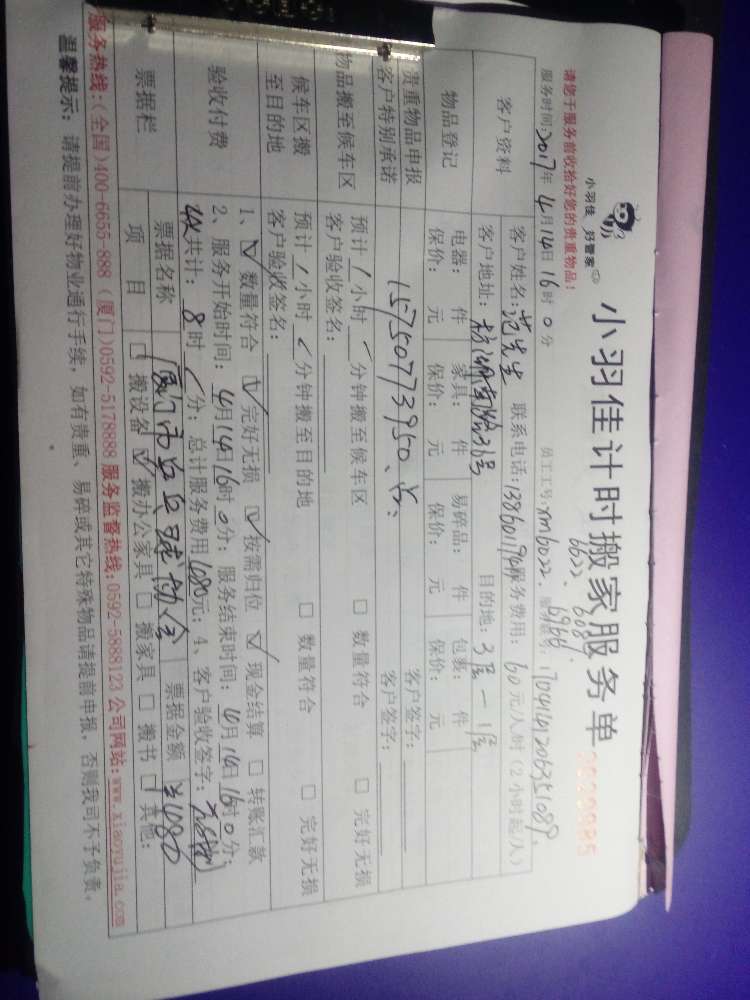 小羽佳 好管家
小羽佳计时搬家服务单
请您于服务前收拾好您的贵重物品!
服务时间:2017年4月14日16时0分 员工工号:xm6022、6622、
客户资料 客户姓名:范先生 联系电话: 服务费用:60元/人/时(2小时起/人)
客户地址: 36号 目的地:3层一1层
物品登记 电器: 件 家具: 件 易碎品: 件 包裹: 件
保价: 元 保价: 元 保价: 元 保价: 元
贵重物品申报 15750773950、 客户签字:
客户特别承诺 客户签字:
物品搬至候车区 预计/小时/分钟搬至候车区 □ 数量符合 □ 完好无损
客户验收签名:
候车区搬至目的地 预计/小时/分钟搬至目的地 □ 数量符合 □ 完好无损
客户验收签名:
验收付费 1、☑ 数量符合 ☑ 完好无损 ☑ 按需归位 ☑ 现金结算 □ 转账汇款
2、服务开始时间:4月14日16时0分; 服务结束时间:4月14日16时0分;
共计:8时/分; 总计服务费用1080元; 4、客户验收签字:
票据栏 票据名称 厦门市 票据金额 ¥1080
项目 □ 搬设备 ☑ 搬办公家具 □ 搬家具 □ 搬书 □ 其他:
服务热线:(全国)400-6655-888 (厦门)0592-5178888 服务监督热线:0592-5888123 公司网站:www.xiaoyujia.com
温馨提示: 请提前办理好物业通行手续, 如有贵重、易碎或其它特殊物品请提前申报, 否则我司不予负责,